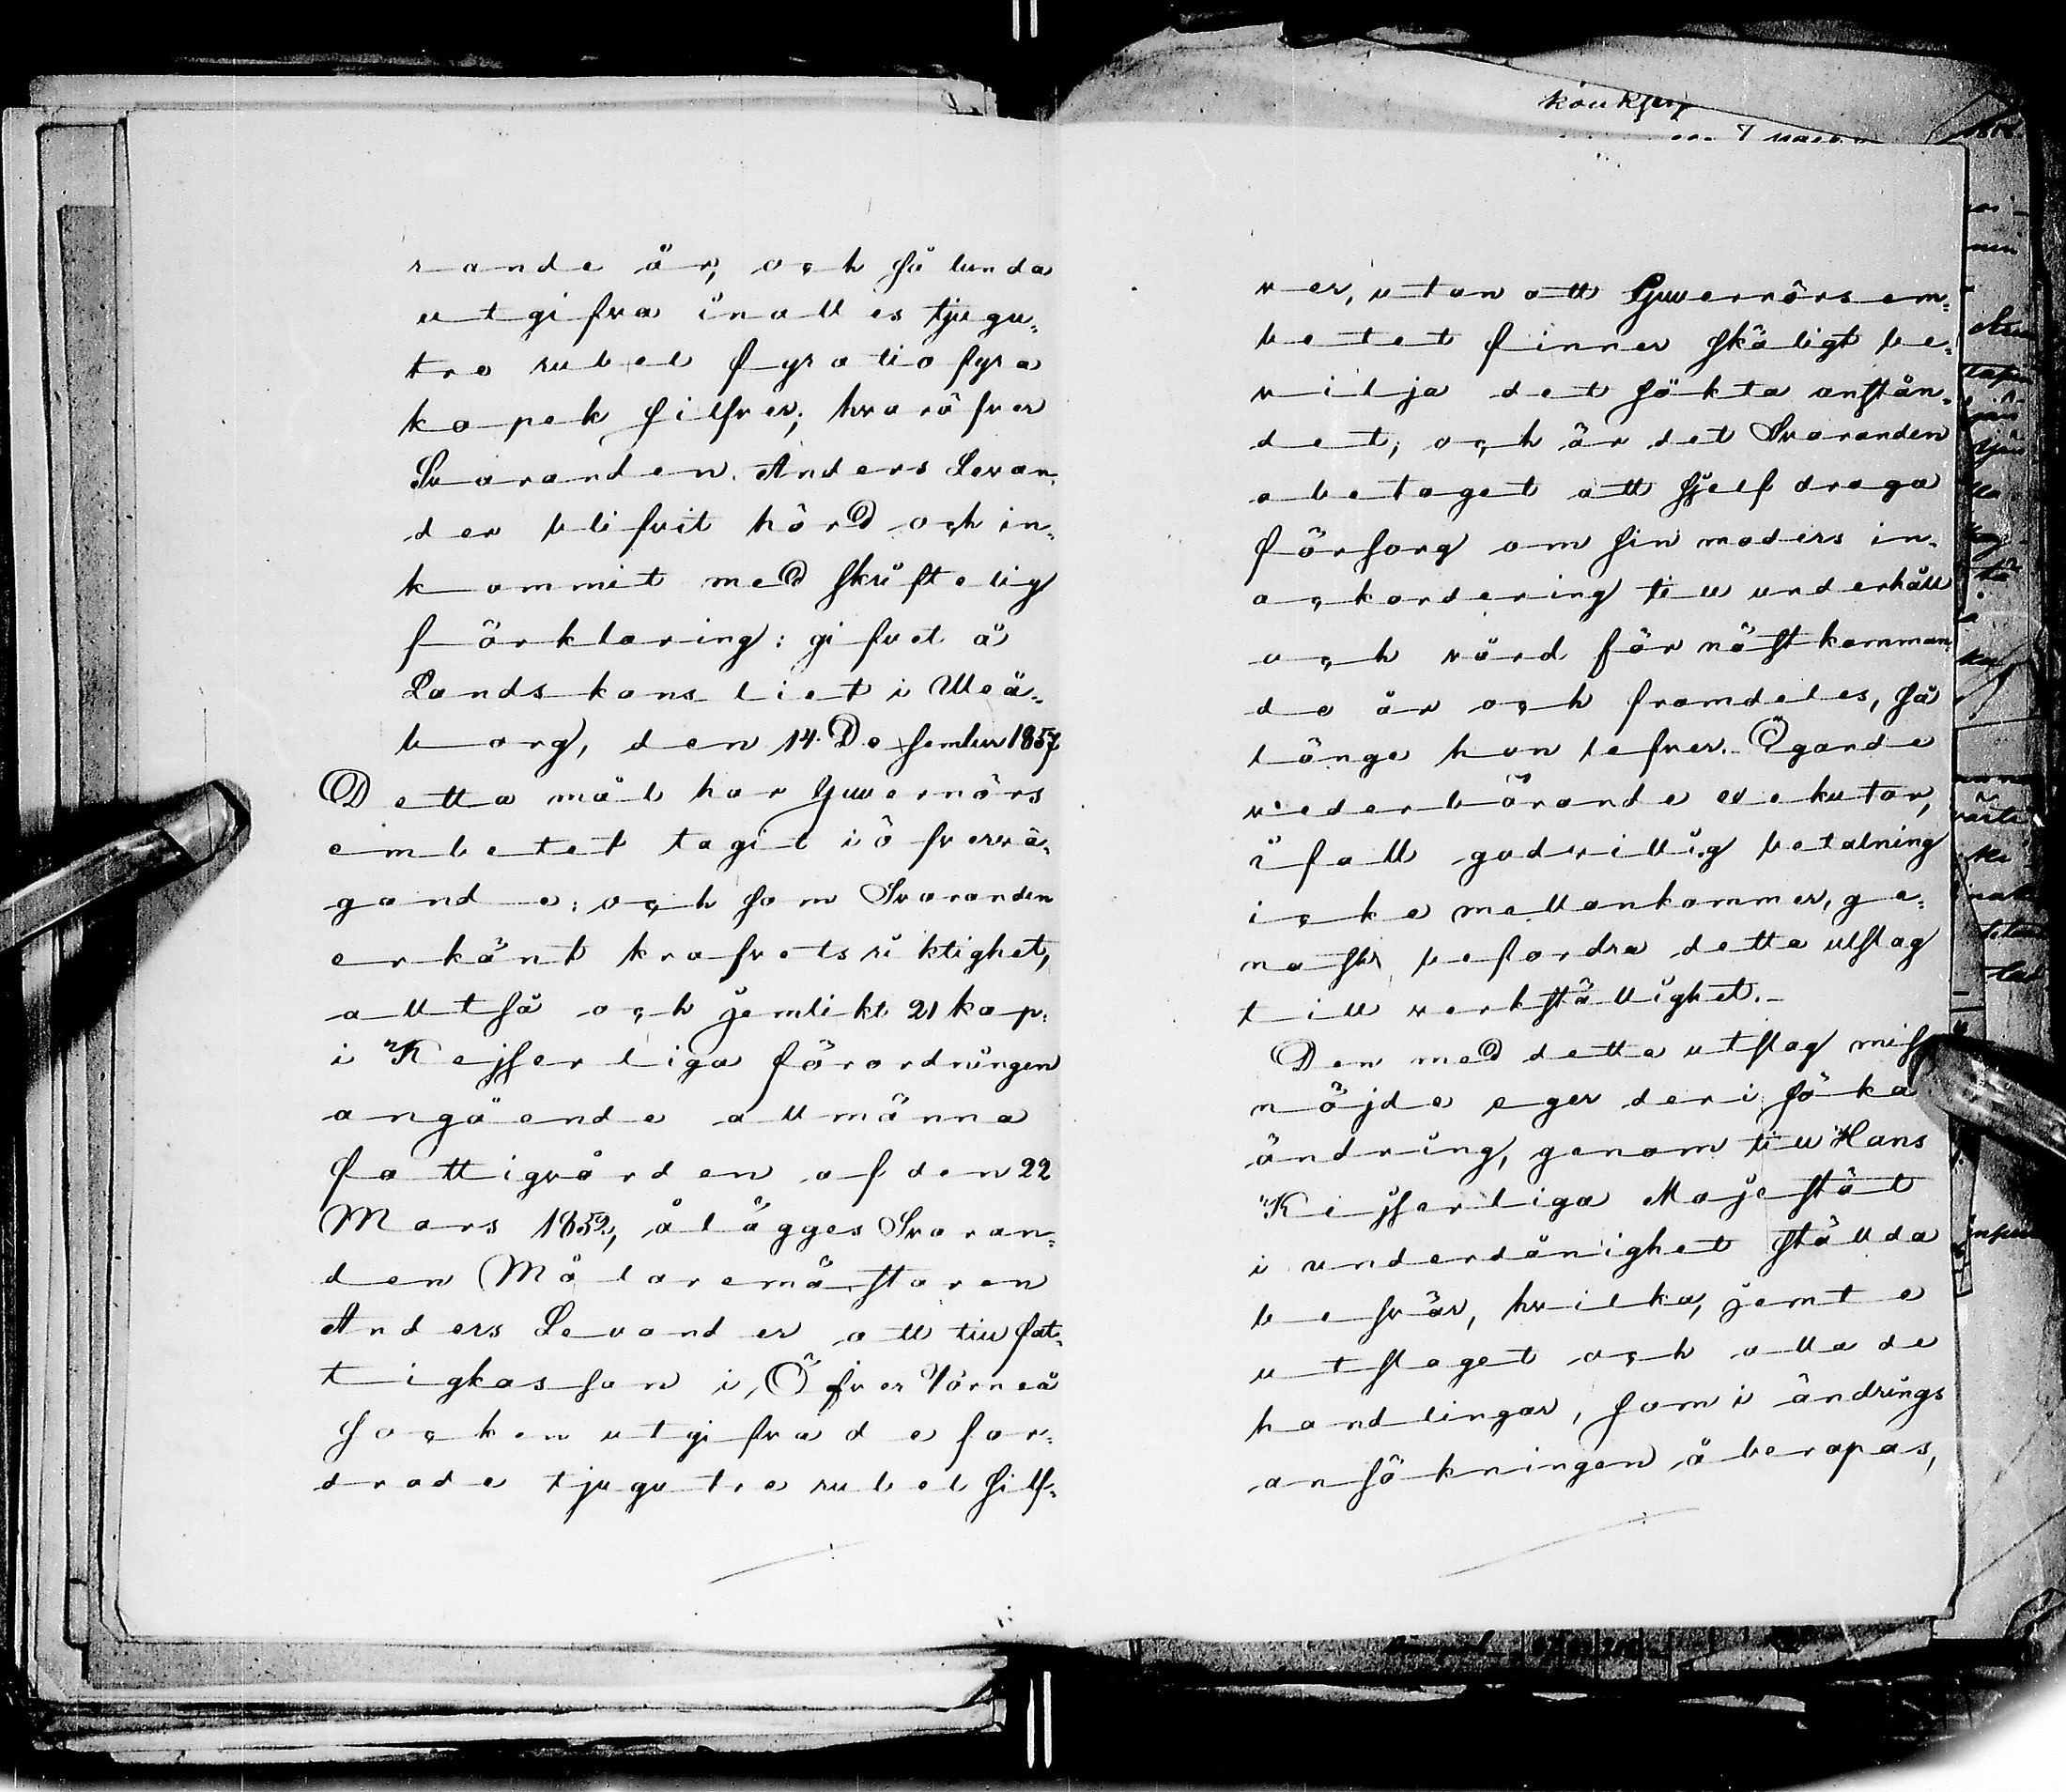 rande år, och så lunda
utgifva inalles tjugu-
tre rubel fyratiofyra
kopek silfver; hvaröfver
Svaranden Anders Levan-
der blifvit hörd och in-
kommit med skriftelig
förklaring: gifvet å
Landskansliet i Uleå-
borg, den 14 December 1857
Detta mål har Guvernörs
embetet tagit i öfvervä-
gande; och som Svaranden
erkänt krafvets riktighet,
alltså och jemlikt 21 kap.
i Kejserliga förordningen
angående allmänna
fattigvården af den 22
Mars 1852, ålägges Svaran-
den Målaremästaren
Anders Levander att till fat-
tigkassan i Öfver Torneå
socken utgifva de for-
drade tjugutre rubel silf-
ver, utan att Guvernörsem-
betet finner skäligt be-
vilja det sökta anstån-
det; och är det Svaranden
obetaget att sjelf draga
försorg om sin moders in-
ackordering till underhåll
och vård för nästkomman-
de år och framdeles, så
länge hon lefver. Ägande
vederbörande exekutor,
ifall godvillig betalning
icke mellankommer, ge-
nast befordra detta utslag
till verkställighet.-
Den med detta utslag miss
nöjde eger deri söka
ändring, genom till Hans
Kejserliga Majestät
i underdånighet ställda
besvär, hvilka, jemte
utslaget och alla de
handlingar, som i ändrings
ansökningen åberopas,